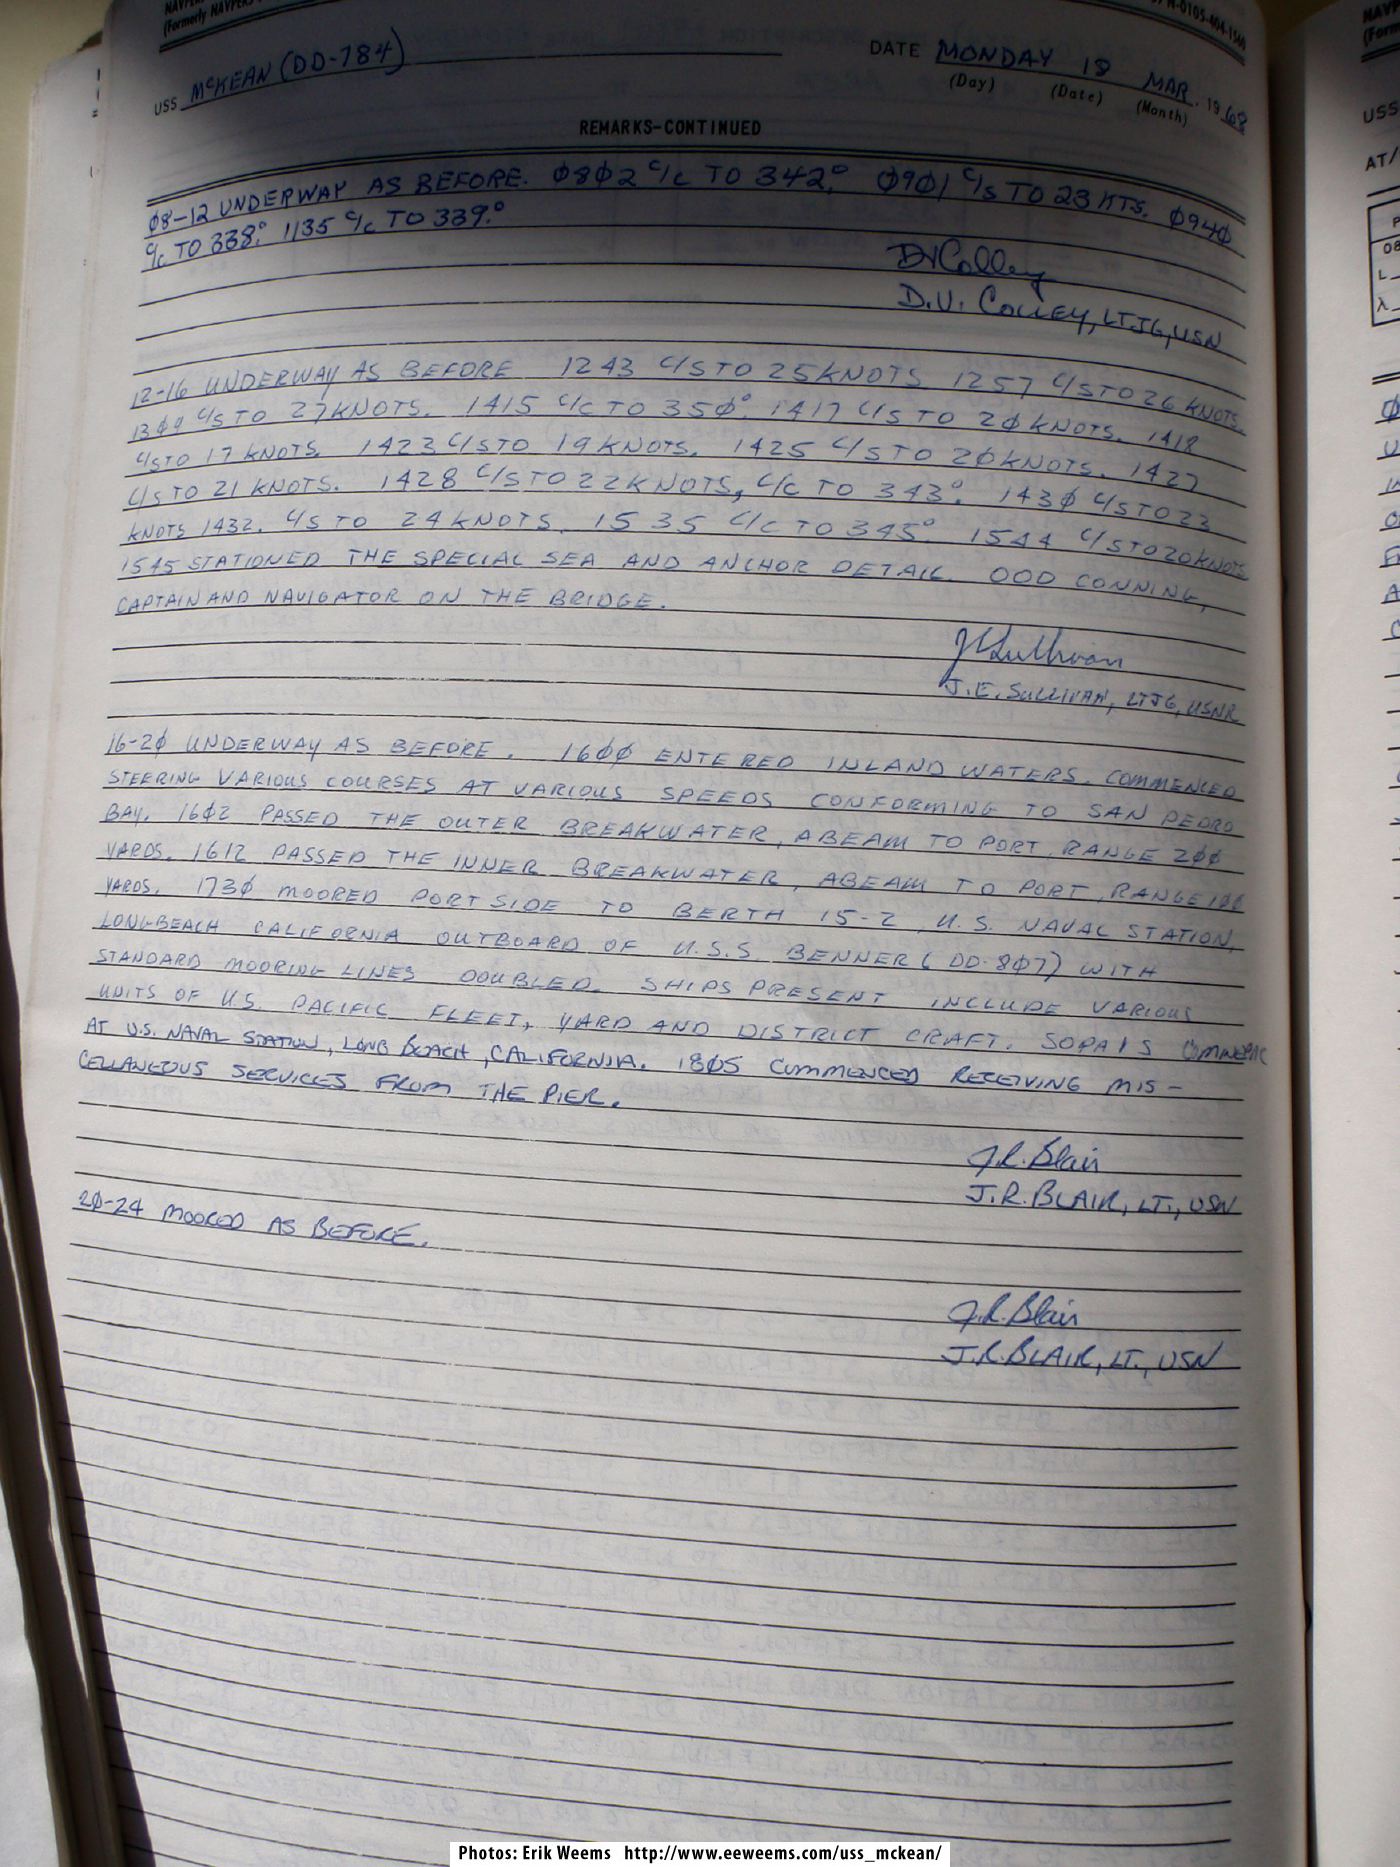 NAVPERS
(Formerly NAVPERS
N-0105-404-1560
USS McKEAN (DD-784) DATE MONDAY 18 MAR. 1968
(Day) (Date) (Month)
REMARKS-CONTINUED
Ø8-12 UNDERWAY AS BEFORE. Ø8Ø2 C/C TO 342°. Ø9Ø1 C/S TO 23 KTS. Ø94Ø
C/C TO 338°. 1135 C/C TO 339°.
DVColley
D.V. COLLEY, LTJG, USN
12-16 UNDERWAY AS BEFORE 1243 C/S TO 25 KNOTS 1257 C/S TO 26 KNOTS.
C/S TO 27 KNOTS. 1415 C/C TO 35Ø°. 1417 C/S TO 2Ø KNOTS. 1418
C/S TO 17 KNOTS. 1423 C/S TO 19 KNOTS. 1425 C/S TO 2Ø KNOTS. 1427
C/S TO 21 KNOTS. 1428 C/S TO 22 KNOTS, C/C TO 343°. 143Ø C/S TO 23
KNOTS 1432. C/S TO 24 KNOTS. 1535 C/C TO 345°. 1544 C/S TO 20 KNOTS
1545 STATIONED THE SPECIAL SEA AND ANCHOR DETAIL. OOD CONNING,
CAPTAIN AND NAVIGATOR ON THE BRIDGE.
JESullivan
J.E. SULLIVAN, LTJG, USNR
16-2Ø UNDERWAY AS BEFORE. 16ØØ ENTERED INLAND WATERS. COMMENCED
STEERING VARIOUS COURSES AT VARIOUS SPEEDS CONFORMING TO SAN PEDRO
BAY. 16Ø2 PASSED THE OUTER BREAKWATER, ABEAM TO PORT, RANGE 2ØØ
YARDS. 1612 PASSED THE INNER BREAKWATER, ABEAM TO PORT, RANGE
YARDS. 173Ø MOORED PORT SIDE TO BERTH 15-2, U.S. NAVAL STATION,
LONGBEACH CALIFORNIA OUTBOARD OF U.S.S BENNER (DD-8Ø7) WITH
STANDARD MOORING LINES DOUBLED. SHIPS PRESENT INCLUDE VARIOUS
UNITS OF U.S. PACIFIC FLEET, YARD AND DISTRICT CRAFT. SOPA IS
AT U.S. NAVAL STATION, LONG BEACH, CALIFORNIA. 18Ø5 COMMENCED RECEIVING MIS-
CELLANEOUS SERVICES FROM THE PIER.
J.R. Blair
J.R. BLAIR, LT., USN
2Ø-24 MOORED AS BEFORE.
J.R. Blair
J.R. BLAIR, LT., USN
USS
AT/
Photos: Erik Weems http://www.eeweems.com/uss_mckean/